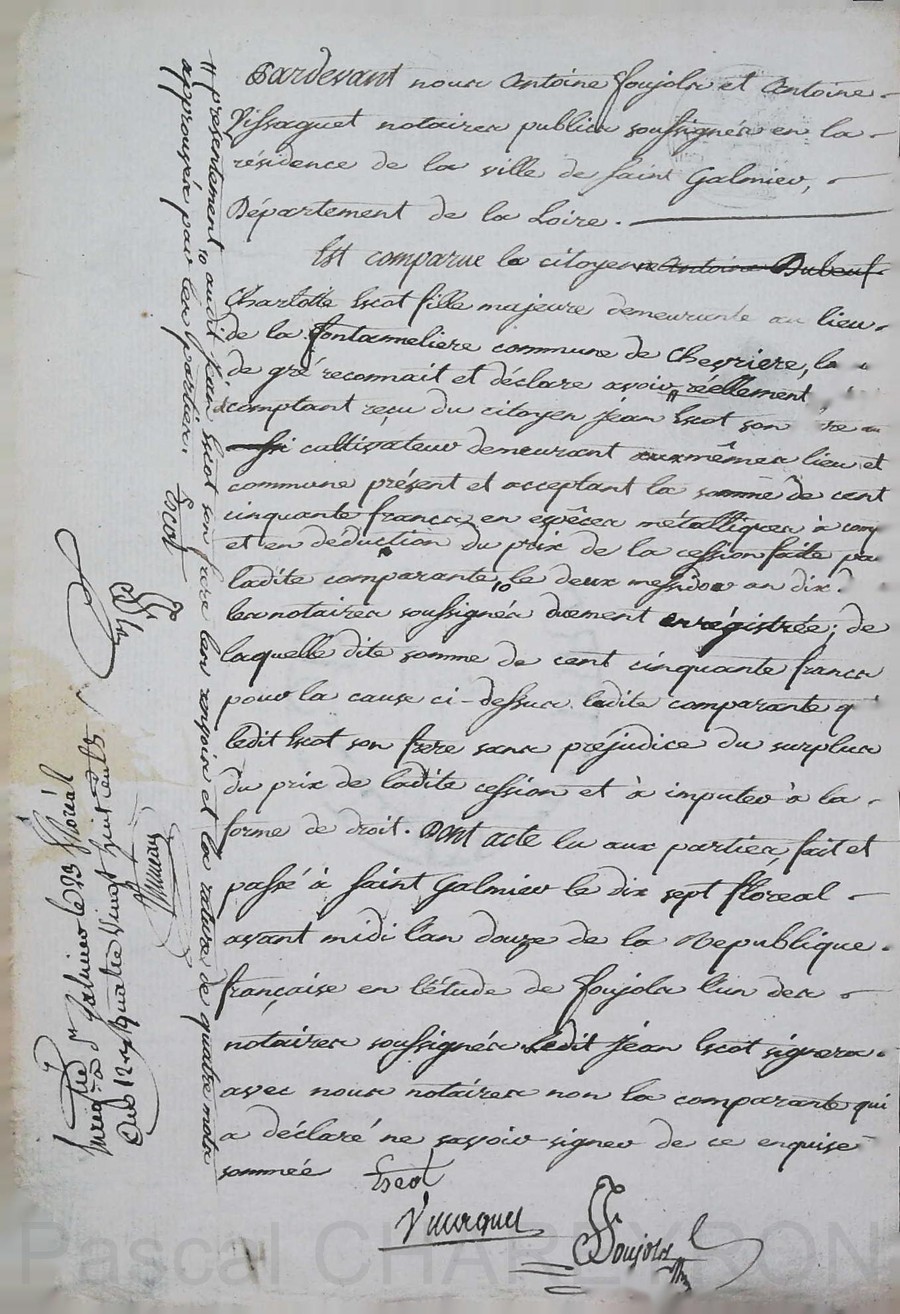 Pardevant nous Antoine Foujols et Antoine
Vissaguet notaires publics soussignés en la
résidence de la ville de Saint Galmier,
Département de la Loire.
Est comparue la citoyenne Antoine Dubeuf
Charlotte Escot fille majeure demeurante au lieu
de la fontanneliere commune de Chevriere,
de gré reconnait et déclare avoir # réellement
comptant reçu du citoyen jean Escot son
cultivateur demeurant aux mêmes lieu et
commune présent et acceptant la somme de cent
cinquante francs en espèces métalliques à
et en déduction du prix de la cession faite
ladite comparante, le deux messidor an dix
les notaires soussignés duement enrégistrée; de
laquelle dite somme de cent cinquante francs
pour la cause ci-dessus ladite comparante
ledit Escot son frere sans préjudice du surplus
du prix de ladite cession et à imputer à la
forme de droit. Dont acte lu aux parties, fait et
passé à Saint Galmier le dix sept floreal
avant midi l'an douze de la Republique
française en l'étude de Foujols l'un des
notaires soussignés Ledit jean Escot signera
avec nous notaires non la comparante qui
a déclaré ne savoir signer de ce enquise
sommée
Escot
Foujols
# présentement audit jean Escot son frere les renvoir et la rature de quatre mots
approuvés par les parties.
Escot
a St Galmier le 23 floréal
an 12 quatre vingt huit cents
Pascal CHAREYRON